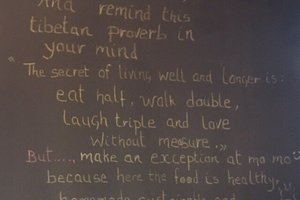 And remind this
tibetan proverb in
your mind
"The secret of living well and longer is:
eat half, walk double,
laugh triple and love
without measure.,,
But...., make an exception at mo mo
because here the food is healthy,
homemade sustainable and